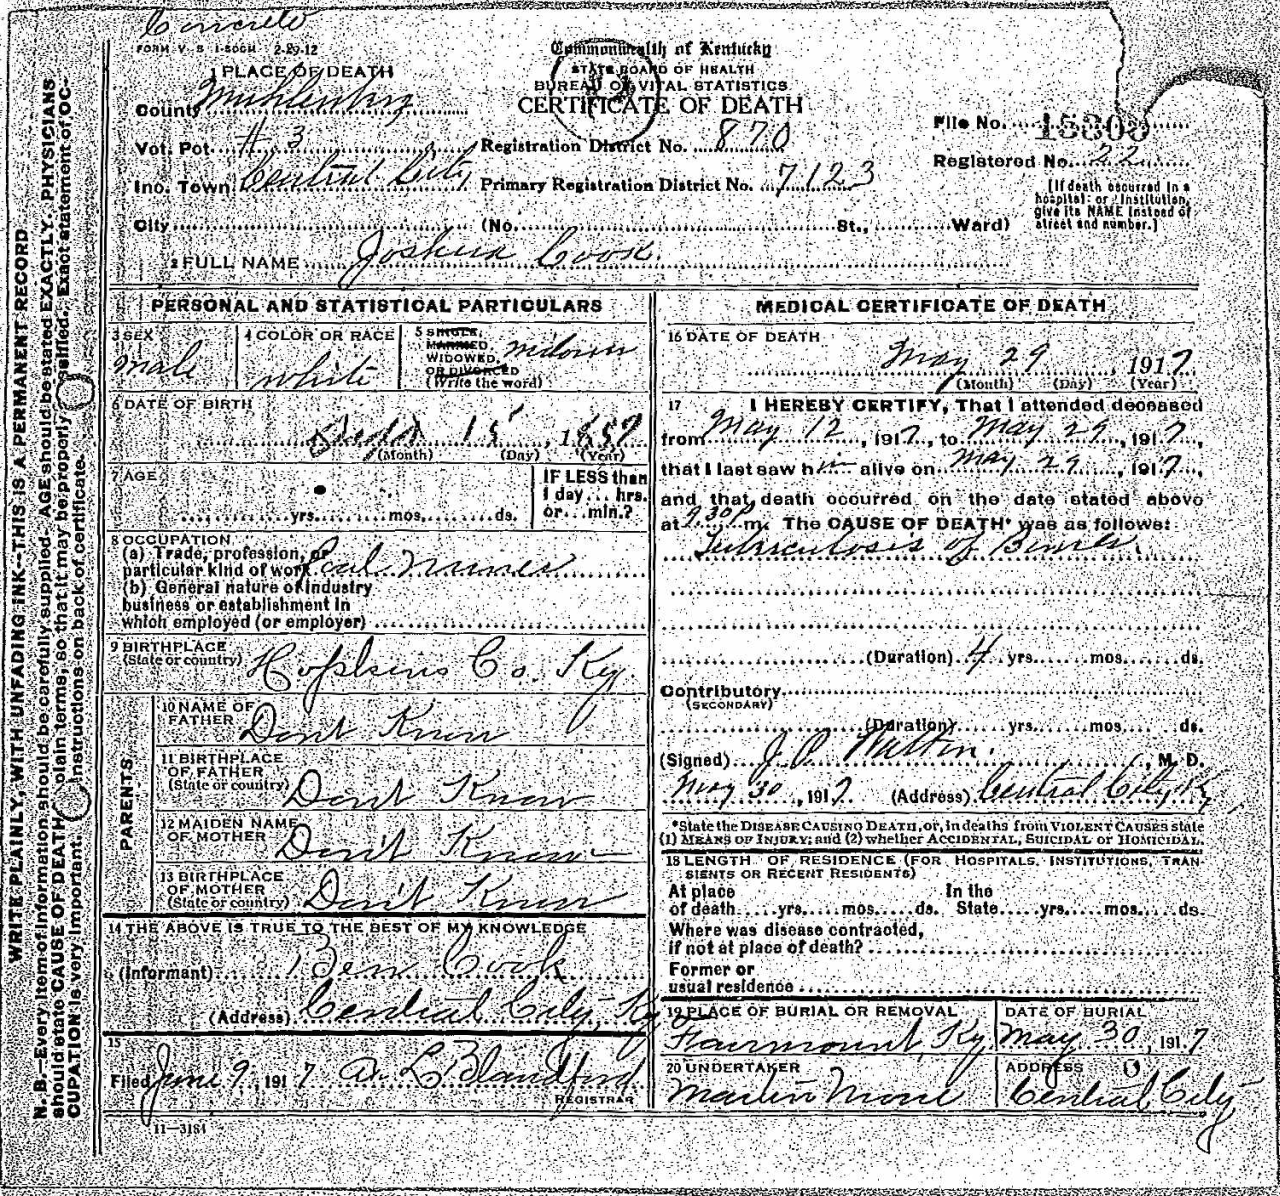 Concrete
FORM V. S. 1-500M 2-29-12
Commonwealth of Kentucky
STATE BOARD OF HEALTH
BUREAU OF VITAL STATISTICS
CERTIFICATE OF DEATH
1 PLACE OF DEATH
County Muhlenberg
Vot. Pct. # 3
Registration District No. 870
File No.
Registered No. 22
Inc. Town Central City
Primary Registration District No. 7123
[If death occurred in a
hospital or institution,
give its NAME instead of
street and number.]
City (No. St., Ward)
2 FULL NAME Joshua Cook.
PERSONAL AND STATISTICAL PARTICULARS
3 SEX
male
4 COLOR OR RACE
White
5 SINGLE,
MARRIED,
WIDOWED,
OR DIVORCED
(Write the word)
widower
6 DATE OF BIRTH
15, 1857
(Month) (Day) (Year)
7 AGE
yrs. mos. ds.
IF LESS than
1 day... hrs.
or... min.?
8 OCCUPATION
(a) Trade, profession, or
particular kind of work Coal
(b) General nature of industry
business or establishment in
which employed (or employer)
9 BIRTHPLACE
(State or country) Hopkins Co. Ky.
PARENTS
10 NAME OF
FATHER Don't Know
11 BIRTHPLACE
OF FATHER
(State or country) Don't Know
12 MAIDEN NAME
OF MOTHER Don't Know
13 BIRTHPLACE
OF MOTHER
(State or country) Don't Know
14 THE ABOVE IS TRUE TO THE BEST OF MY KNOWLEDGE
(Informant) Ben Cook
(Address) Central City, Ky
15
Filed June 9, 1917 A. L. Blandford
REGISTRAR
11-3184
MEDICAL CERTIFICATE OF DEATH
16 DATE OF DEATH
May 29, 1917
(Month) (Day) (Year)
17 I HEREBY CERTIFY, That I attended deceased
from May 12, 1917, to May 29, 1917,
that I last saw him alive on May 29, 1917,
and that death occurred on the date stated above
at 930P m. The CAUSE OF DEATH* was as follows:
Tuberculosis of
(Duration) 4 yrs. mos. ds.
Contributory
(SECONDARY)
(Duration) yrs. mos. ds.
(Signed) J. P. Walton, M. D.
May 30, 1917 (Address) Central City, Ky
*State the DISEASE CAUSING DEATH, or, in deaths from VIOLENT CAUSES state
(1) MEANS OF INJURY; and (2) whether ACCIDENTAL, SUICIDAL OR HOMICIDAL.
18 LENGTH OF RESIDENCE (FOR HOSPITALS, INSTITUTIONS, TRAN-
SIENTS OR RECENT RESIDENTS)
At place
of death yrs. mos. ds.
In the
State yrs. mos. ds.
Where was disease contracted,
if not at place of death?
Former or
usual residence
19 PLACE OF BURIAL OR REMOVAL
Fairmount, Ky
DATE OF BURIAL
May 30, 1917
20 UNDERTAKER
Martin Moore
ADDRESS
Central City
WRITE PLAINLY, WITH UNFADING INK—THIS IS A PERMANENT RECORD
N. B.—Every item of information should be carefully supplied. AGE should be stated EXACTLY. PHYSICIANS
should state CAUSE OF DEATH in plain terms, so that it may be properly classified. Exact statement of OC-
CUPATION is very important. Instructions on back of certificate.